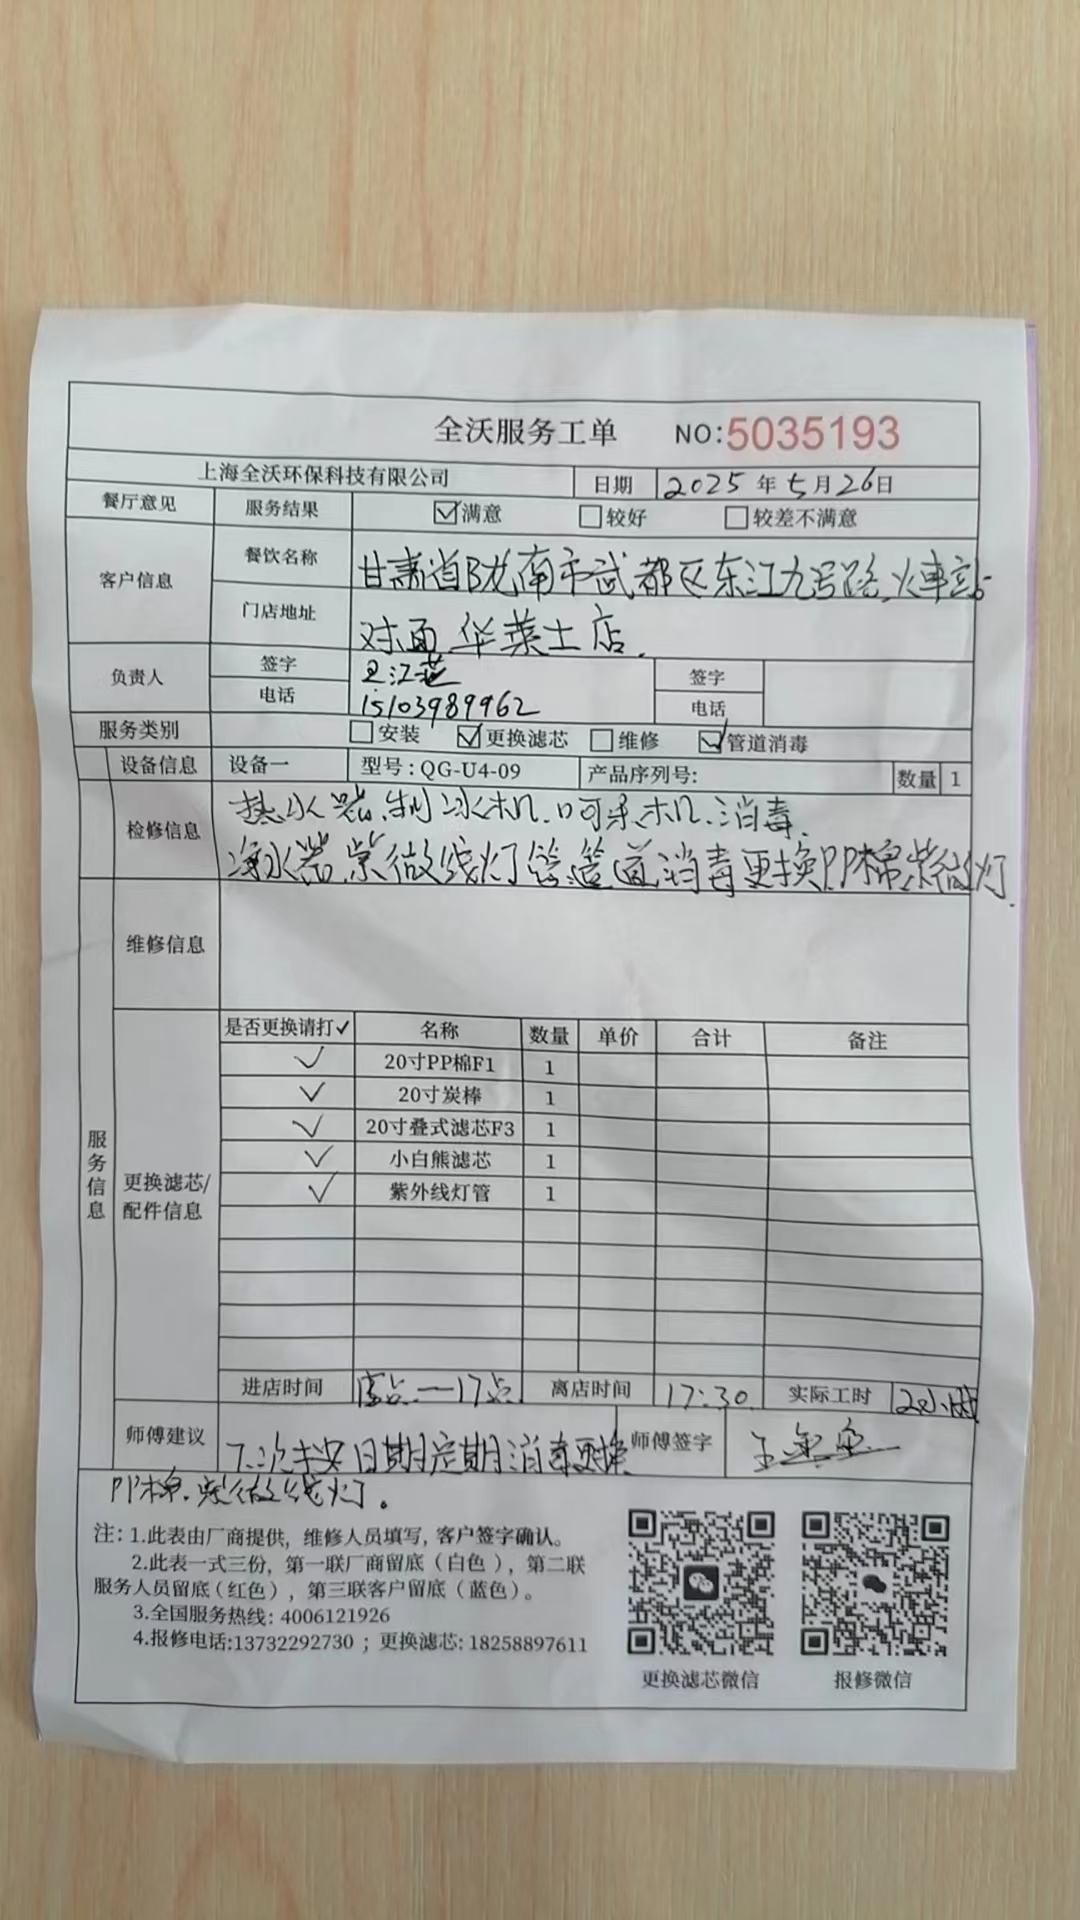 全沃服务工单 NO:5035193
上海全沃环保科技有限公司 日期 2025年5月26日
餐厅意见 服务结果 满意 较好 较差不满意
客户信息 餐饮名称 甘肃省陇南市武都区东江九号路.火車站
门店地址 对面.华莱士店.
负责人 签字 王江燕 签字
电话 15103989962 电话
服务类别 安装 更换滤芯 维修 管道消毒
设备信息 设备一 型号:QG-U4-09 产品序列号: 数量 1
检修信息 热水器.制冰机.可乐机.消毒.
净水器.紫微线灯管.管道消毒更换PP棉.紫微灯.
维修信息
服务信息
更换滤芯/配件信息
是否更换请打✓ 名称 数量 单价 合计 备注
✓ 20寸PP棉F1 1
✓ 20寸炭棒 1
✓ 20寸叠式滤芯F3 1
✓ 小白熊滤芯 1
✓ 紫外线灯管 1
进店时间 点—17点. 离店时间 17:30 实际工时 2小时
师傅建议 下次按日期定期消毒更换 师傅签字
PP棉.紫微线灯。
注: 1.此表由厂商提供, 维修人员填写, 客户签字确认。
2.此表一式三份, 第一联厂商留底(白色), 第二联
服务人员留底(红色), 第三联客户留底(蓝色)。
3.全国服务热线: 4006121926
4.报修电话:13732292730 ; 更换滤芯: 18258897611
更换滤芯微信 报修微信